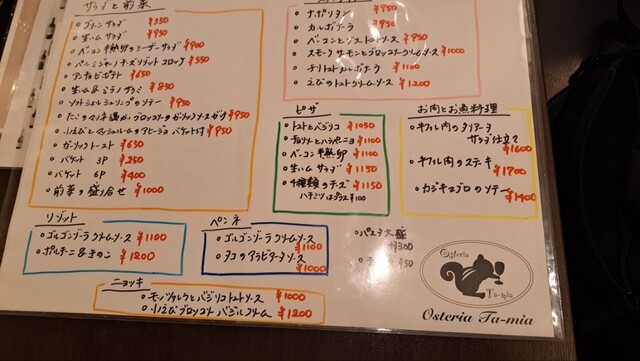 サラダと前菜
・グリーンサラダ ¥350
・生ハムサラダ ¥950
・ベーコンと半熟卵のシーザーサラダ ¥900
・パルミジャーノチーズリゾットコロッケ ¥550
・アンチョビポテト ¥650
・生ハム&ミラノサラミ ¥850
・ソフトシェルシュリンプのソテー ¥950
・たこのマリネ 温かいブロッコリーのガーリックソースがけ ¥950
・小えびとマッシュルームのアヒージョ バケット付 ¥950
・ガーリックトースト ¥650
・バケット 3P ¥250
・バケット 6P ¥400
・前菜の盛り合せ ¥1000
・ナポリタン ¥950
・カルボナーラ ¥950
・ベーコンとナストマトソース ¥950
・スモークサーモンとブロッコリークリームソース ¥1000
・チリトマトカルボナーラ ¥1100
・えびのトマトクリームソース ¥1200
ピザ
・トマトとバジリコ ¥1050
・チョリソーとハラペーニョ ¥1100
・ベーコン半熟卵 ¥1100
・生ハムサラダ ¥1150
・4種類のチーズ ¥1150
ハチミツはプラス ¥100
お肉とお魚料理
・牛フィレ肉のタリアータ
サラダ仕立て ¥1600
・牛フィレ肉のステーキ ¥1700
・カジキマグロのソテー ¥1400
リゾット
・ゴルゴンゾーラクリームソース ¥1100
・ポルチーニ&きのこ ¥1200
ペンネ
・ゴルゴンゾーラクリームソース ¥1100
・タコのアラビアータソース ¥1000
・パスタ大盛
¥300
¥50
ニョッキ
・モッツァレラとバジリコトマトソース ¥1000
・小えびブロッコリーバジルクリーム ¥1200
Osteria
Ta-mia
Osteria Ta-mia